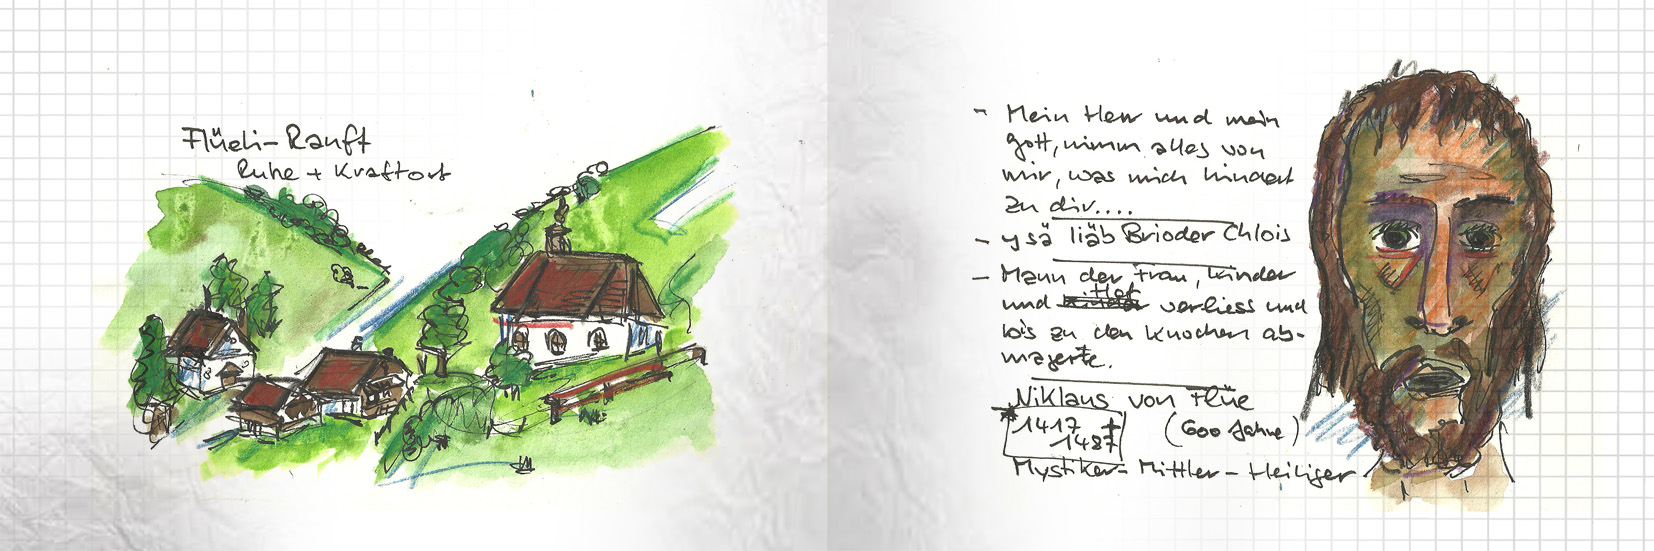 Flüeli-Ranft
Ruhe + Kraftort
- Mein Herr und mein
Gott, nimm alles von
mir, was mich hindert
zu dir....
- ysä liäb Brioder Chlois
- Mann der Frau, Kinder
und Hof verliess und
bis zu den Knochen ab-
magerte.
Niklaus von Flüe
*1417 †
1487
(600 Jahre)
Mystiker - Mittler - Heiliger